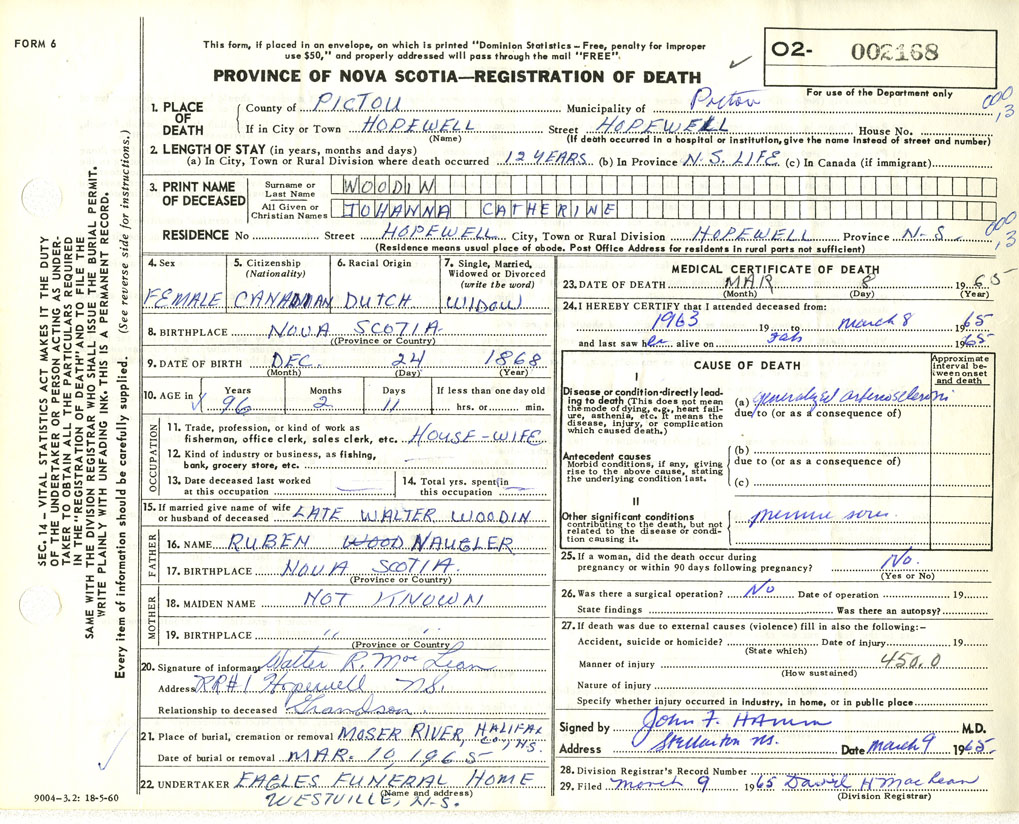 FORM 6
This form, if placed in an envelope, on which is printed "Dominion Statistics – Free, penalty for improper
use $50," and properly addressed will pass through the mail "FREE".
O2- 002168
For use of the Department only
PROVINCE OF NOVA SCOTIA—REGISTRATION OF DEATH
1. PLACE OF DEATH County of PICTOU Municipality of Pictou
000
13
If in City or Town HOPEWELL Street HOPEWELL House No.
(Name) (If death occurred in a hospital or institution, give the name instead of street and number)
2. LENGTH OF STAY (in years, months and days)
(a) In City, Town or Rural Division where death occurred 12 YEARS (b) In Province N.S. LIFE (c) In Canada (if immigrant)
3. PRINT NAME OF DECEASED
Surname or Last Name WOODIN
All Given or Christian Names JOHANNA CATHERINE
RESIDENCE No Street HOPEWELL City, Town or Rural Division HOPEWELL Province N.S.
000
13
(Residence means usual place of abode. Post Office Address for residents in rural parts not sufficient)
4. Sex 5. Citizenship (Nationality) 6. Racial Origin 7. Single, Married, Widowed or Divorced (write the word)
FEMALE CANADIAN DUTCH WIDOW
8. BIRTHPLACE NOVA SCOTIA
(Province or Country)
9. DATE OF BIRTH DEC. 24 1868
(Month) (Day) (Year)
10. AGE in Years Months Days If less than one day old
96 2 11 hrs. or min.
OCCUPATION
11. Trade, profession, or kind of work as
fisherman, office clerk, sales clerk, etc. HOUSE-WIFE
12. Kind of industry or business, as fishing,
bank, grocery store, etc.
13. Date deceased last worked
at this occupation
14. Total yrs. spent in
this occupation
15. If married give name of wife
or husband of deceased LATE WALTER WOODIN
FATHER
16. NAME RUBEN WOOD NAUGLER
17. BIRTHPLACE NOVA SCOTIA
(Province or Country)
MOTHER
18. MAIDEN NAME NOT KNOWN
19. BIRTHPLACE " "
(Province or Country)
20. Signature of informant Walter R. MacLean
Address RR#1 Hopewell NS.
Relationship to deceased Grandson
21. Place of burial, cremation or removal MOSER RIVER, HALIFAX
CO., N.S.
Date of burial or removal MAR. 10, 1965
22. UNDERTAKER EAGLES FUNERAL HOME
(Name and address)
WESTVILLE, N.S.
9004–3.2: 18-5-60
MEDICAL CERTIFICATE OF DEATH
23. DATE OF DEATH MAR 8 1965
(Month) (Day) (Year)
24. I HEREBY CERTIFY that I attended deceased from:
1963 19 to march 8 1965
and last saw her alive on Feb 1965
CAUSE OF DEATH
Approximate interval between onset and death
I
Disease or condition directly leading to death (This does not mean
the mode of dying, e.g., heart failure, asthenia, etc. It means the
disease, injury, or complication
which caused death.)
(a) generalized arteriosclerosis
due to (or as a consequence of)
Antecedent causes
Morbid conditions, if any, giving
rise to the above cause, stating
the underlying condition last.
(b)
due to (or as a consequence of)
(c)
II
Other significant conditions
contributing to the death, but not
related to the disease or condition causing it.
pressure sores
25. If a woman, did the death occur during
pregnancy or within 90 days following pregnancy? No.
(Yes or No)
26. Was there a surgical operation? No Date of operation 19
State findings Was there an autopsy?
27. If death was due to external causes (violence) fill in also the following:–
Accident, suicide or homicide? Date of injury 19
(State which)
Manner of injury 450.0
(How sustained)
Nature of injury
Specify whether injury occurred in industry, in home, or in public place
Signed by John F. Hamm M.D.
Address Stellarton NS. Date march 9 1965.
28. Division Registrar's Record Number
29. Filed March 9 1965 David H MacLean
(Division Registrar)
SEC. 14 – VITAL STATISTICS ACT MAKES IT THE DUTY
OF THE UNDERTAKER OR PERSON ACTING AS UNDER-
TAKER TO OBTAIN ALL THE PARTICULARS REQUIRED
IN THE "REGISTRATION OF DEATH" AND TO FILE THE
SAME WITH THE DIVISION REGISTRAR WHO SHALL ISSUE THE BURIAL PERMIT.
WRITE PLAINLY WITH UNFADING INK. THIS IS A PERMANENT RECORD.
Every item of information should be carefully supplied. (See reverse side for instructions.)